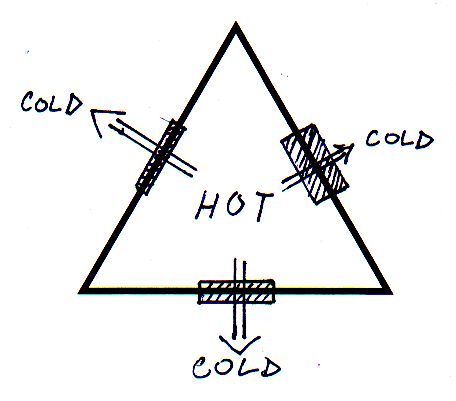 COLD
COLD
HOT
COLD